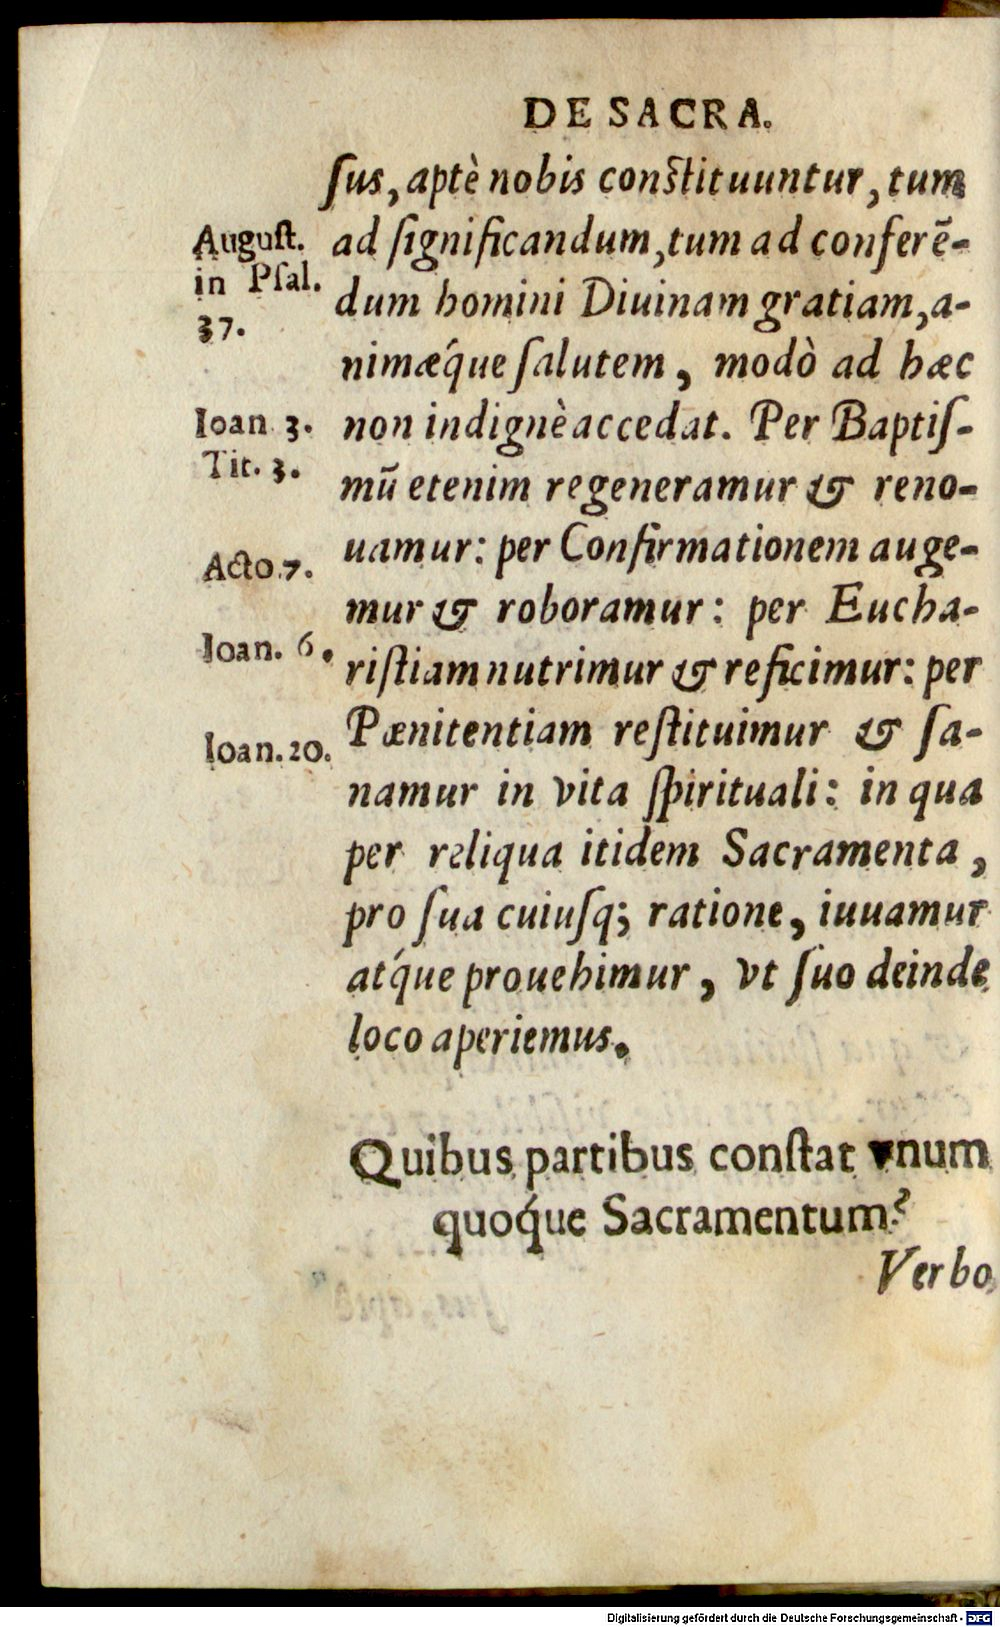 DE SACRA.
ſus, aptè nobis conſtituuntur, tum
August.
in Pſal.
37.
ad ſignificandum, tum ad conferē-
dum homini Diuinam gratiam, a-
nimæq́ue ſalutem, modò ad hæc
Ioan 3.
Tit. 3.
non indignè accedat. Per Baptiſ-
mū etenim regeneramur & reno-
Acto.7.
uamur: per Confirmationem auge-
mur & roboramur: per Eucha-
Ioan. 6.
riſtiam nutrimur & reficimur: per
Ioan.20.
Pænitentiam reſtituimur & ſa-
namur in vita ſpirituali: in qua
per reliqua itidem Sacramenta,
pro ſua cuiuſq; ratione, iuuamur
atq́ue prouehimur, vt ſuo deinde
loco aperiemus.
Quibus partibus conſtat vnum
quoq́ue Sacramentum?
Verbo,
Digitalisierung gefördert durch die Deutsche Forschungsgemeinschaft - DFG